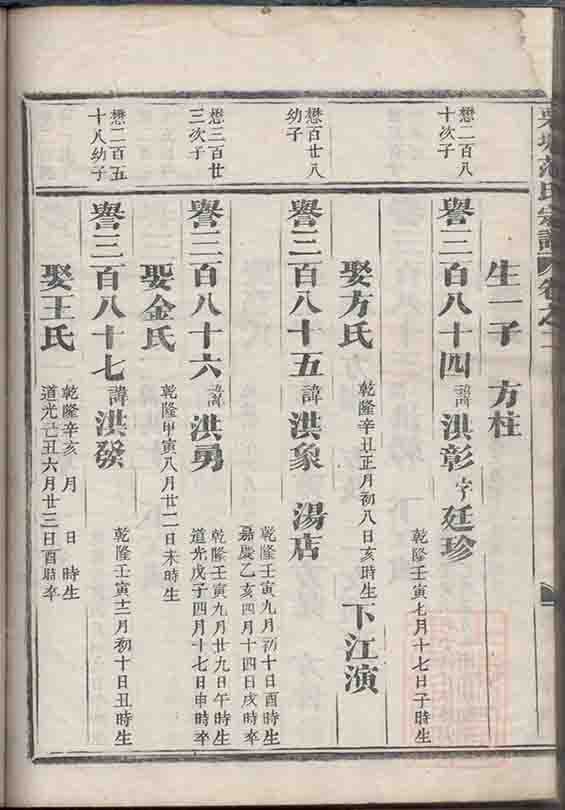 氏宗譜 卷之二
生一子 方柱
懋二百八
十次子
譽三百八十四 諱洪彰 字廷珍
乾隆壬寅七月十七日子時生
娶方氏
乾隆辛丑正月初八日亥時生
下江演
懋百廿八
幼子
譽三百八十五 諱洪象 湯店
乾隆壬寅九月初十日酉時生
嘉慶乙亥四月十四日戌時卒
懋三百廿
三次子
譽三百八十六 諱洪勇
乾隆壬寅九月廿九日午時生
道光戊子四月十七日申時卒
娶金氏
乾隆甲寅八月廿二日未時生
懋二百五
十八幼子
譽三百八十七 諱洪發
乾隆壬寅十二月初十日丑時生
娶王氏
乾隆辛亥 月 日 時生
道光己丑六月廿三日酉時卒